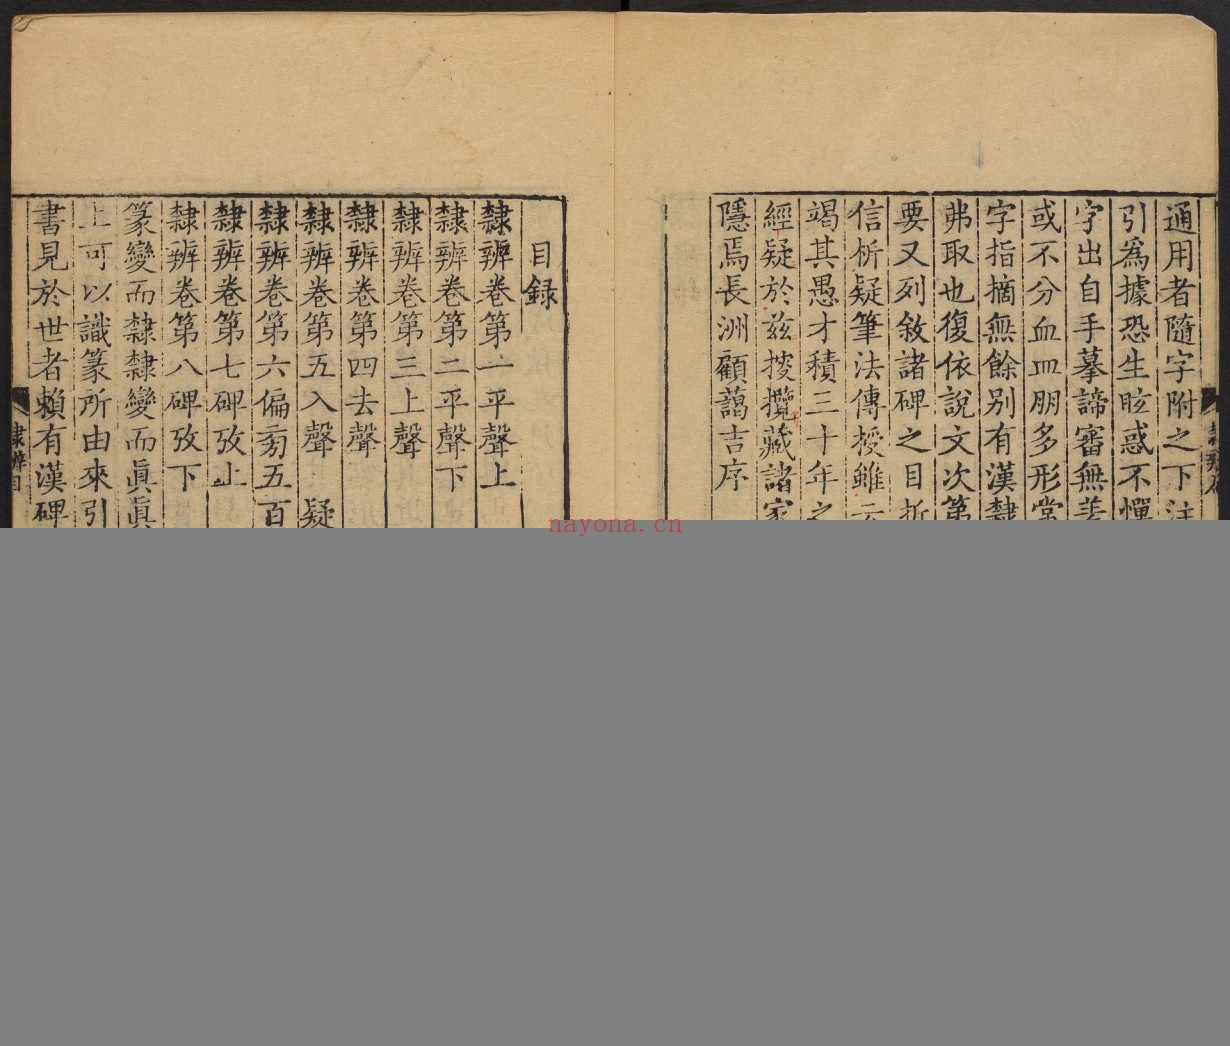 通用者隨字附之下注
引為據恐生眩惑不憚
字出自手摹諦審無差
或不分血皿朋多形常
字指摘無餘別有漢隸
弗取也復依說文次第
要又列敘諸碑之目折
信析疑筆法傳授雖云
竭其愚才積三十年之
經疑於茲挍攬藏諸家
隱焉長洲顧藹吉序
目錄
隸辨卷第一平聲上
隸辨卷第二平聲下
隸辨卷第三上聲
隸辨卷第四去聲
隸辨卷第五入聲 疑
隸辨卷第六偏旁五百
隸辨卷第七碑攷上
隸辨卷第八碑攷下
篆變而隸隸變而眞眞
上可以識篆所由來引
書見於世者賴有漢碑
隸辨目
nayona.cn